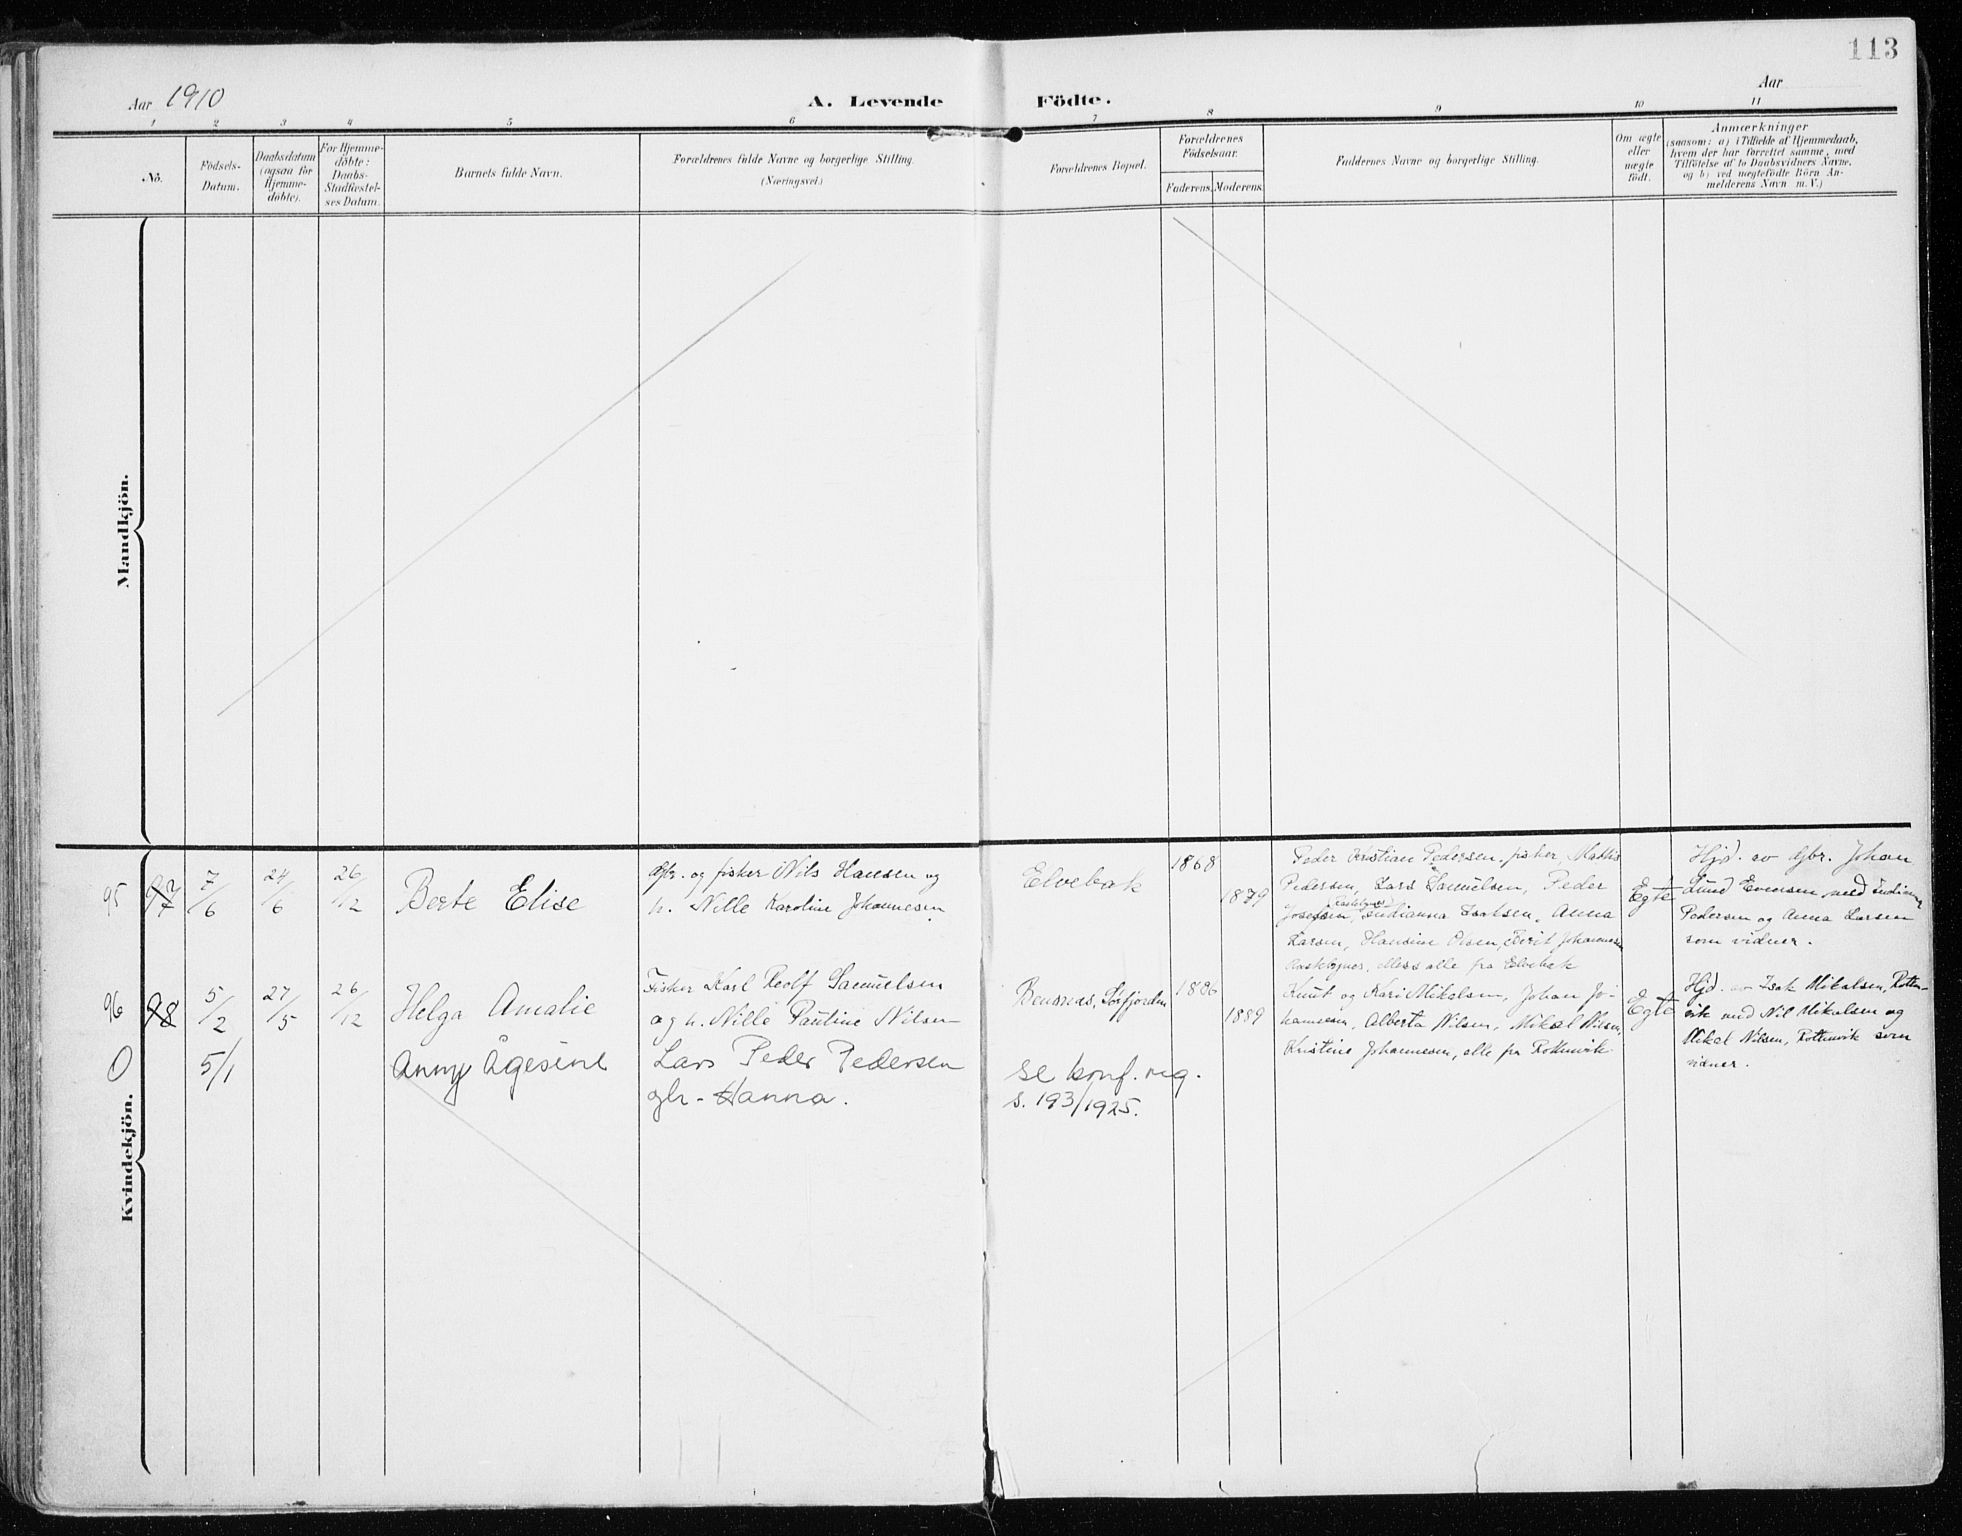 113
Aar 1910
A. Levende Födte.
Aar
1 2 3 4 5 6 7 8 9 10 11
Nö.
Födsels-
Datum.
Daabsdatum
(ogsaa for
Hjemme-
döbte).
For Hjemme-
döbte:
Daabs-
Stadfæstel-
ses Datum.
Barnets fulde Navn.
Forældrenes fulde Navne og borgerlige Stilling.
(Næringsvei.)
Forældrenes Bopæl.
Forældrenes
Födselsaar.
Faderens.
Moderens.
Faddernes Navne og borgerlige Stilling.
Om ægte
eller
uægte
födt.
Anmærkninger
(saasom: a) i Tilfælde af Hjemmedaab,
hvem der har forrettet samme, med
Tilföielse af to Daabsvidners Navne,
og b) ved uægtefödte Börn An-
melderens Navn m. V.)
Mandkjön.
Kvindekjön.
95 97
7/6
24/6
26/12
Berte Elise
Gbr. og fisker Nils Hansen og
h. Nille Karoline Johannesen
Elvebak
1868
1879
Peder Kristian Pedersen, fisker, Mathis
Pedersen, Lars Samuelsen, Peder
Josefsen, Isaksen, Anna
Larsen, Hansine Olsen, Berit Johannesen
alle fra Elvebak
Egte
Hjd. av gbr. Johan
Lund Evensen med
Pedersen og Anna Larsen
som vidner.
96 98
5/2
27/5
26/12
Helga Amalie
Fisker Karl Rolf Samuelsen
og h. Nille Pauline Nilsen
Bensnes, Sørfjorden
1886
1889
Knut og Kari Mikalsen, Johan Jo-
hannesen, Alberta Nilsen, Mikal Nilsen,
Kristine Johannesen, alle fra Rottenvik
Egte
Hjd. av Isak Mikalsen, Rotten-
vik med Nil Mikalsen og
Mikal Nilsen, Rottenvik som
vidner.
0
5/1
Anny Ågesine
Lars Peder Pedersen
gbr - Hanna.
se konf. reg.
s. 193/1925.